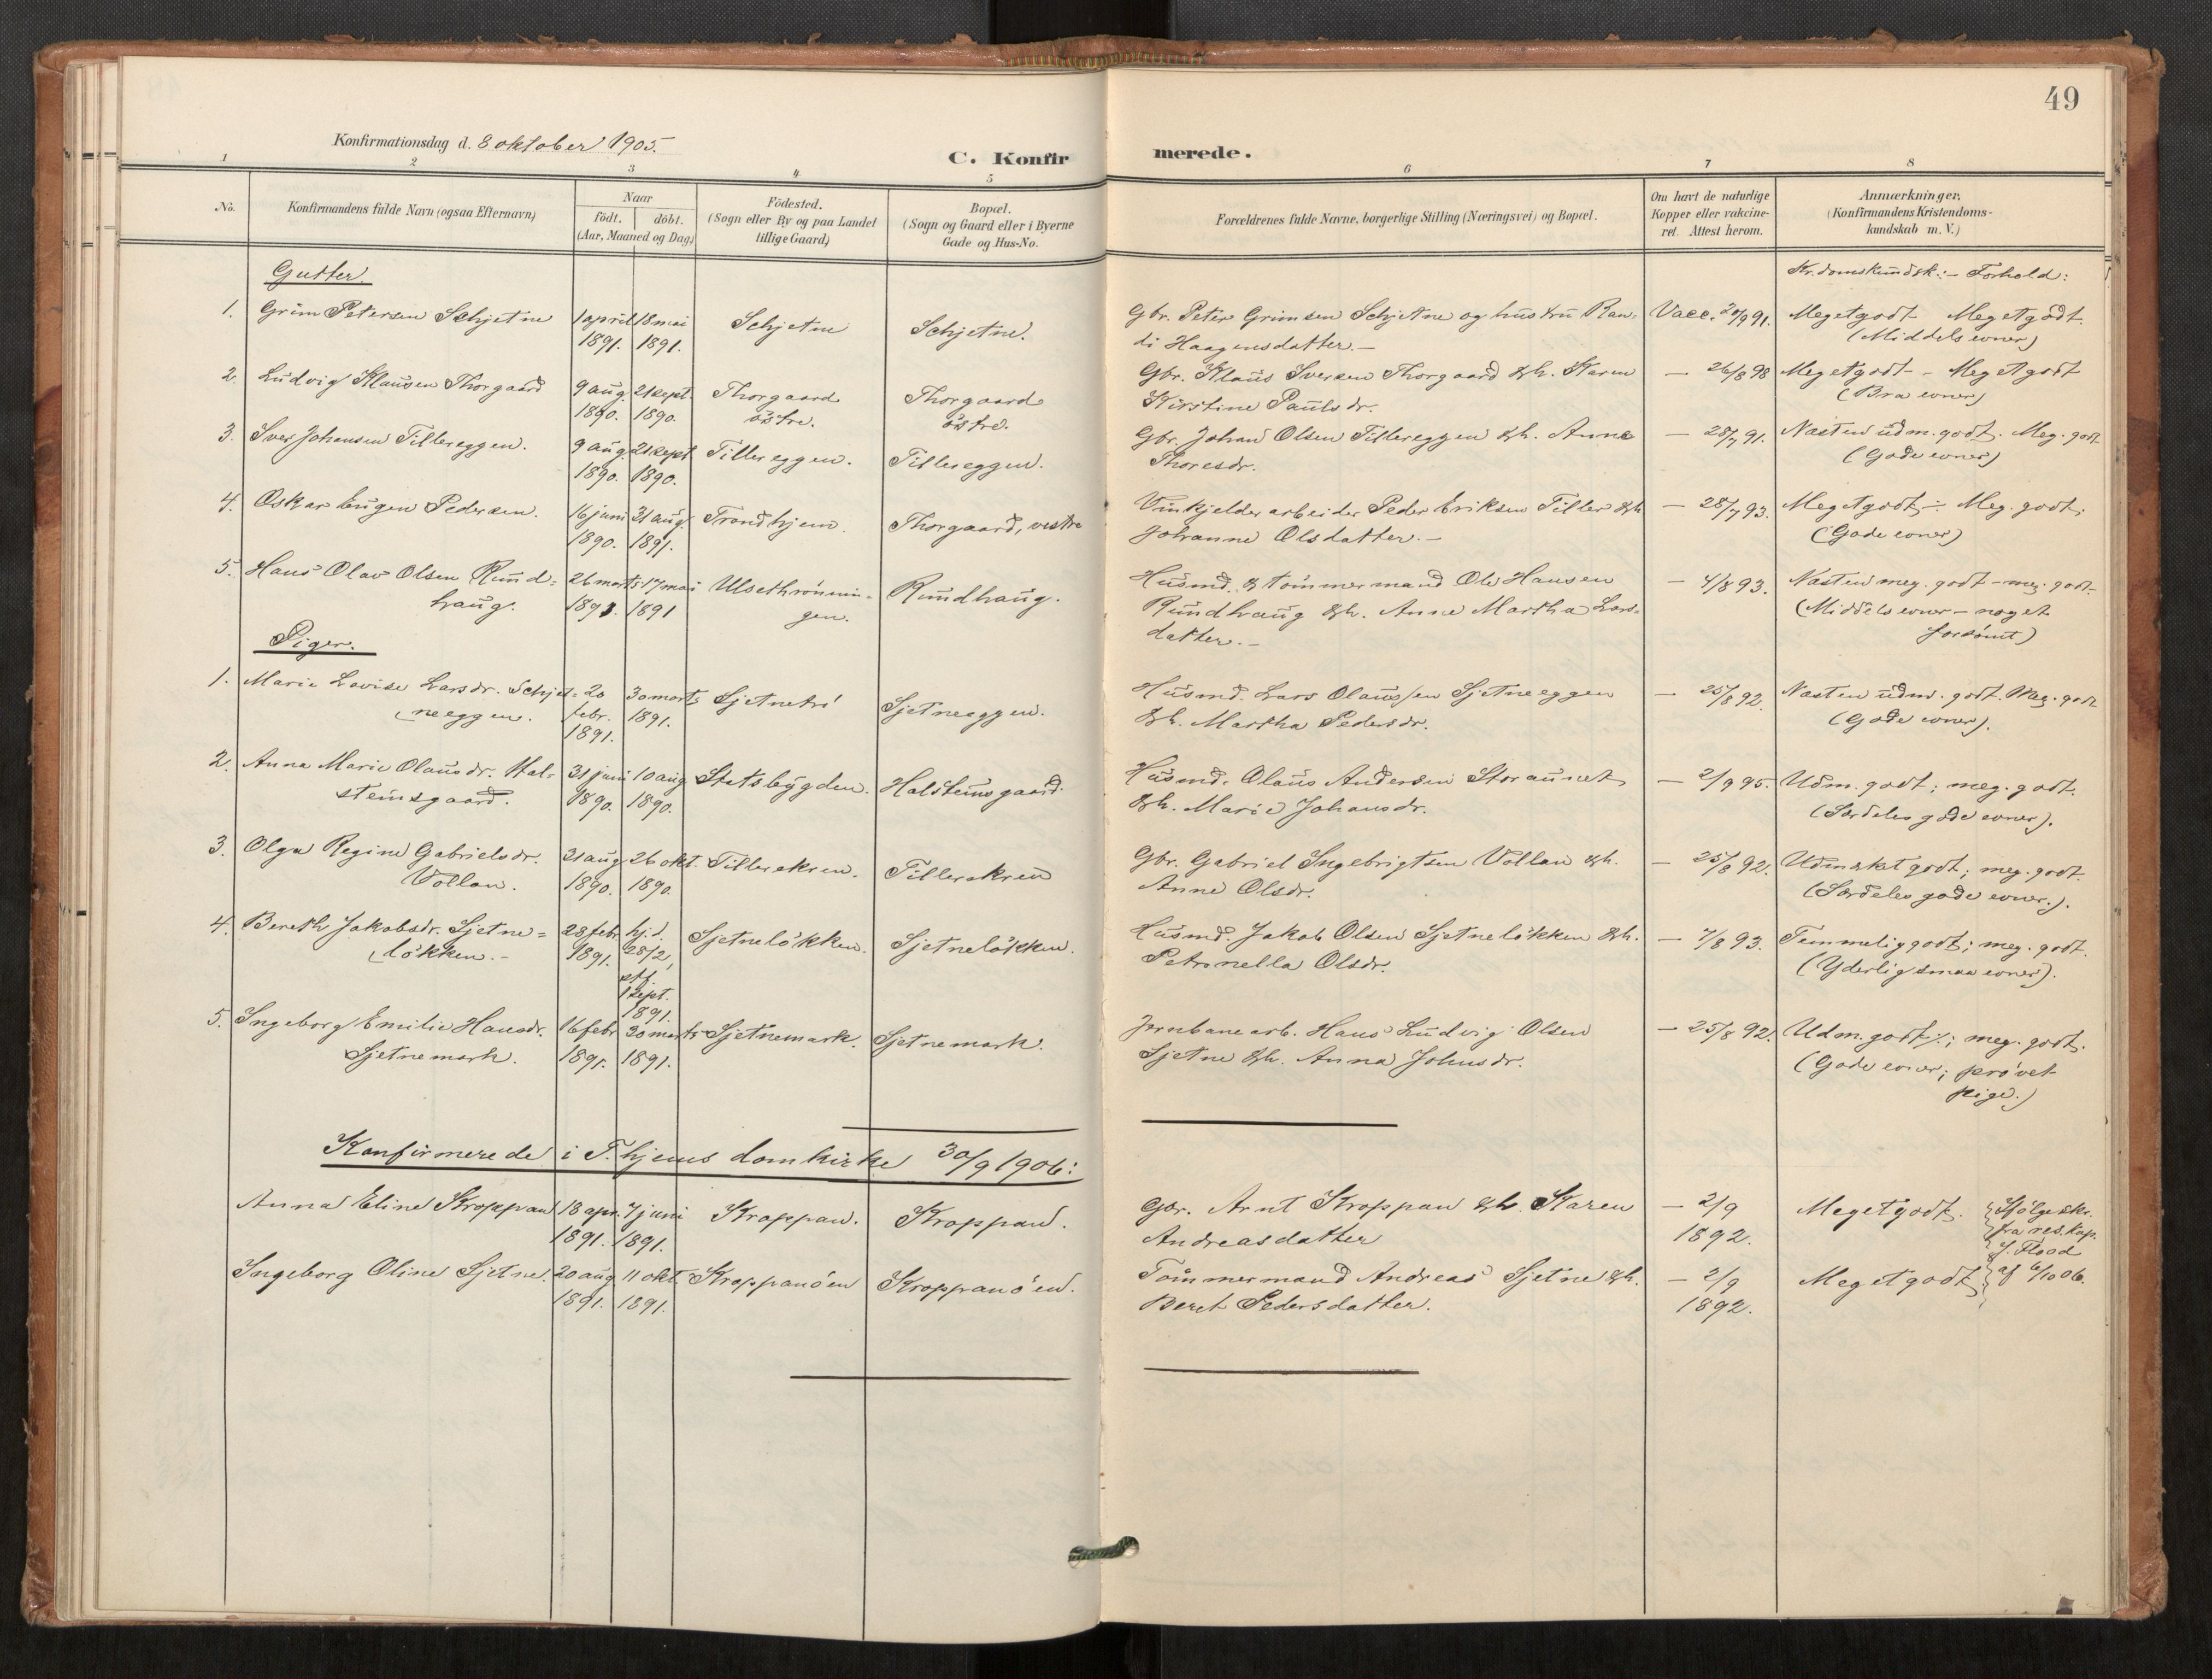 49
Konfirmationsdag d. 8 oktober 1905.
C. Konfirmerede.
1 2 3 4 5 6 7 8
No.
Konfirmandens fulde Navn (ogsaa Efternavn)
Naar
födt. döbt.
(Aar, Maaned og Dag)
Födested.
(Sogn eller By og paa Landet
tillige Gaard)
Bopæl.
(Sogn og Gaard eller i Byerne
Gade og Hus-No.
Forældrenes fulde Navne, borgerlige Stilling (Næringsvei) og Bopæl.
Om havt de naturlige
Kopper eller vakcine-
ret. Attest herom.
Anmærkninger.
(Konfirmandens Kristendoms-
kundskab m. V.)
Gutter.
Kr.domskundsk: - Forhold:
1. Grim Petersen Schjetne 1 april 18 mai Schjetne Schjetne. Gbr. Peter Grimsen Schjetne og hustru Ran- Vacc. 20/9 91. Megetgodt Megetgodt.
1891. 1891. di Haagensdatter.- (Middels evner)
2. Ludvig Klausen Thorgaard 9 aug. 21 sept. Thorgaard Thorgaard Gbr. Klaus Iversen Thorgaard & h. Karen - 26/8 98 Megetgodt - Megetgodt
1890. 1890. östre. östre. Kirstine Paulsdr. (Bra evner)
3. Iver Johansen Tillereggen. 9 aug. 21 sept Tillereggen. Tillereggen. Gbr. Johan Olsen Tillereggen & h. Anne - 28/7 91. Næsten udm. godt. Meg. godt
1890. 1890. Thoresdr. (Gode evner)
4. Oskar Eugen Pedersen. 16 juni 31 aug. Trondhjem. Thorgaard, vestre Vinkjelderarbeider Peder Eriksen Tiller & h - 28/7 93. Megetgodt ÷ Meg. godt.
1890. 1891. Johanne Olsdatter.- (Gode evner)
5. Hans Olav Olsen Rund= 26 marts 17 mai Ulsethrönnin- Rundhaug. Husmd. & tömmermand Ole Hansen - 4/8 93. Næsten meg. godt - meg. godt-
haug. 1891 gen. Rundhaug & h. Anne Martha Lars= (Middels evner - noget
datter.- forsömt)
Piger.
1. Marie Lovise Larsdr. Schjet= 20 30 marts Sjetnetrö Sjetneeggen. Husmd. Lars Olaussen Sjetneeggen - 25/8 92. Næsten udm. godt. Meg. godt
neeggen. febr. 1891. & h. Martha Pedersdr. (Gode evner).
1891.
2. Anna Marie Olausdr. Hal- 31 juni 10 aug Statsbygden. Halsteinsgaard. Husmd. Olaus Andersen Storaunet - 2/9 95. Udm. godt; meg. godt.
steinsgaard. 1890. 1890. & h. Marie Johansdr. (Særdeles gode evner).
3. Olga Regine Gabrielsdr. 31 aug. 26 okt. Tillerekren. Tillerekren Gbr. Gabriel Ingebrigtsen Vollan & h. - 25/8 92. Udmerket godt; meg. godt.
Vollan. 1890. 1890. Anne Olsdr. (Særdeles gode evner.).
4. Bereth Jakobsdr. Sjetne= 28 febr. hj.d. Sjetnelökken. Sjetnelökken. Husmd. Jakob Olsen Sjetnelökken & h. - 7/8 93. Temmelig godt; meg. godt.
lökken.- 1891. 28/2, Petronella Olsdr. (Yderlig smaa evner).
stf.
1 sept.
1891.
5. Ingeborg Emilie Hansdr. 16 febr 30 marts Sjetnemark. Sjetnemark. Jernbanearb. Hans Ludvig Olsen - 25/8 92. Udm. godt; meg. godt.
Sjetnemark. 1891. 1891. Sjetne & h. Anna Johnsdr. (Gode evner; prövet
pige.)
Konfirmerede i T.hjems domkirke 30/9 1906:
Anna Eline Kroppan 18 apr. 7 juni Kroppan. Kroppan. Gbr. Arnt Kroppan & h. Karen - 2/9 Megetgodt. Ifölge skr.
1891. 1891. Andreasdatter 1892. fra res.kap.
J. Flood
Ingeborg Oline Sjetne. 20 aug 11 okt. Kroppanöen Kroppanöen. Tömmermand Andreas Sjetne & h. - 2/9 Megetgodt af 6/10 06.
1891. 1891. Beret Pedersdatter. 1892.